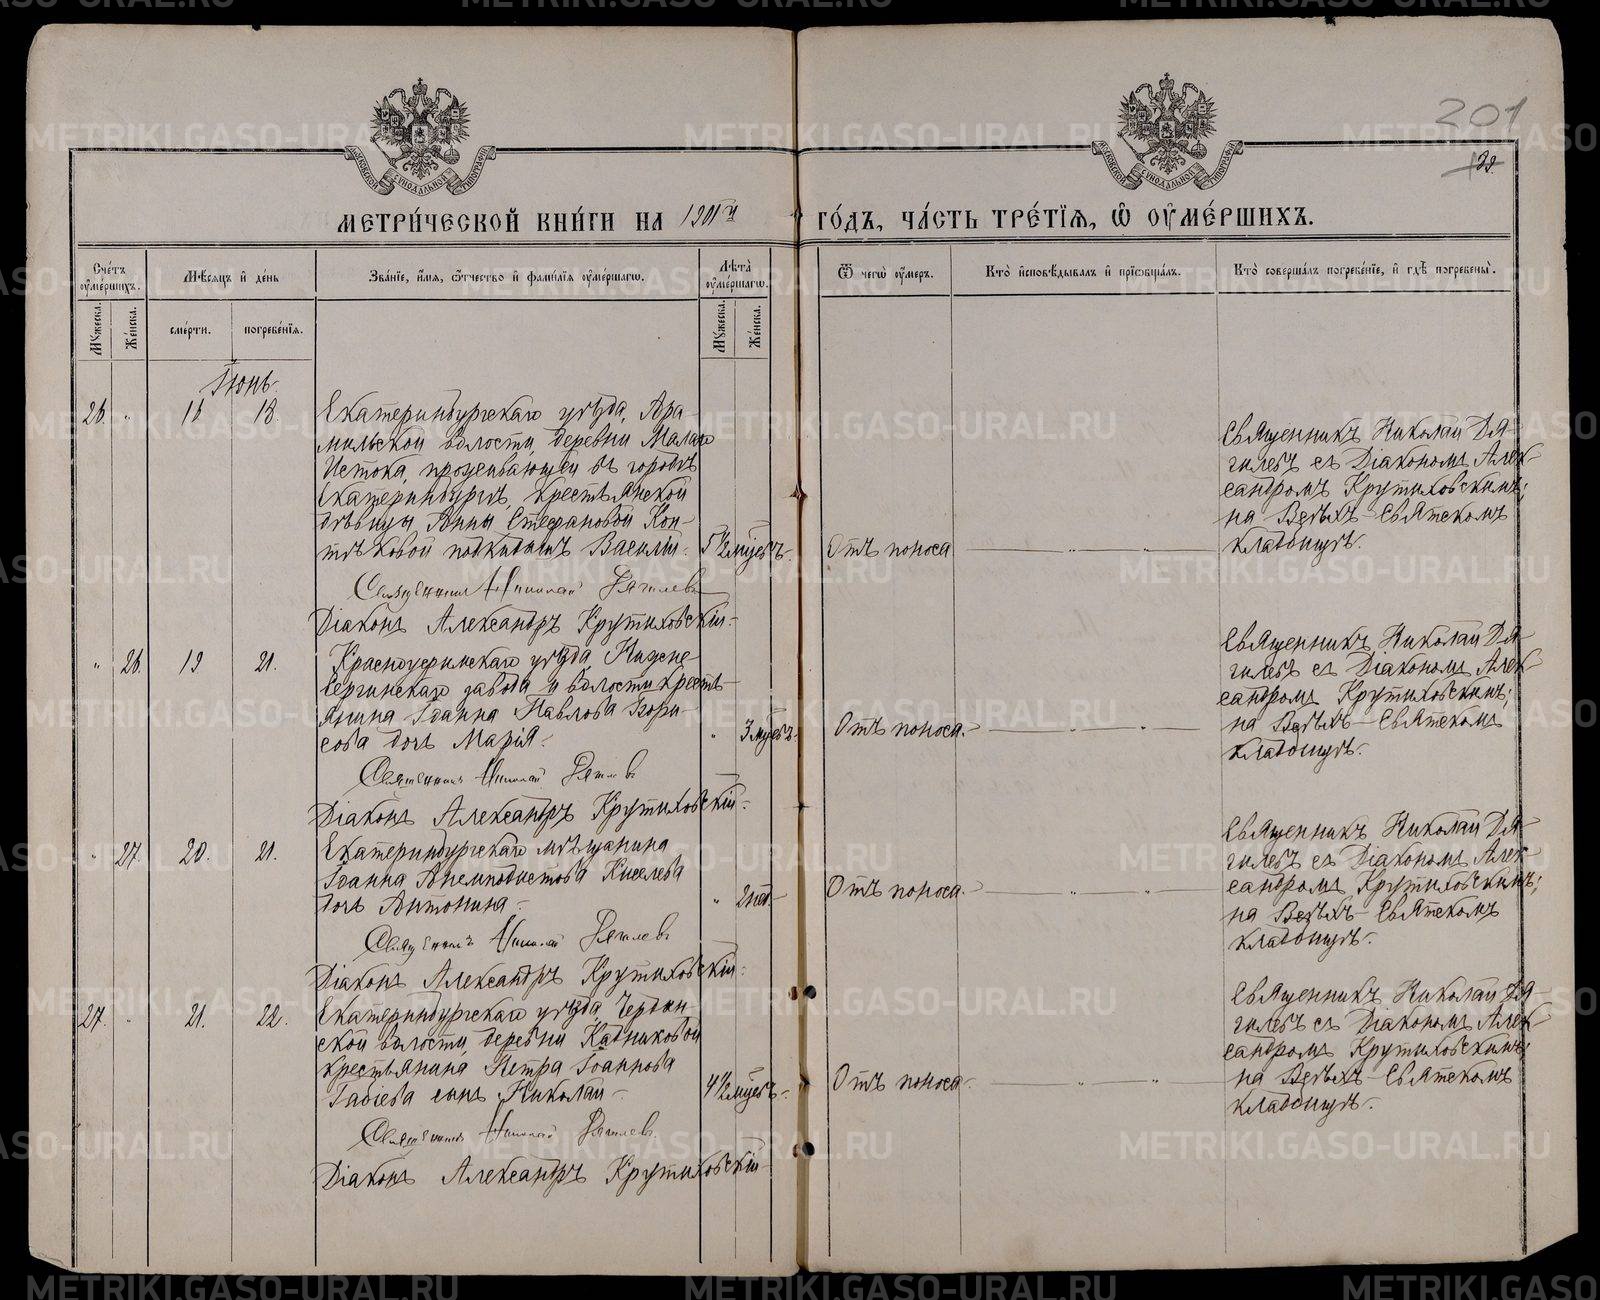 201
39
МОСКОВСКОЙ СѴНОДАЛЬНОЙ ТИПОГРАФІИ
МОСКОВСКОЙ СѴНОДАЛЬНОЙ ТИПОГРАФІИ
МЕТРИ́ЧЕСКОЙ КНИ́ГИ НА 1901й ГО́ДЪ, ЧА́СТЬ ТРЕ́ТІѦ, Ѡ҆ ОУ҆МЕ́РШИХЪ.
Сче́тъ оу҆ме́ршихъ.
Мѣ́сяцъ и҆ де́нь
Зва́нїе, и҆́мя, ѻ҆́тчество и҆ фами́лїя оу҆ме́ршагѡ.
Лѣ́та оу҆ме́ршагѡ.
Ѿ чегѡ̀ оу҆́меръ.
Кто̀ и҆сповѣ́дывалъ и҆ прїѡбща́лъ.
Кто̀ соверша́лъ погребе́нїе, и҆ гдѣ̀ погребены̀.
Му́жеска.
Же́нска.
сме́рти.
погребе́нїя.
Му́жеска.
Же́нска.
Іюнь.
26. " 16 18. Екатеринбургскаго уѣзда, Ара-
мильской волости, деревни Малаго
Истока, проживающей въ городѣ
Екатеринбургѣ, крестьянской
дѣвицы Анны Стефановой Кон-
тѣковой подкидышъ Василій. 5½ мѣсяцъ. Отъ поноса " Священникъ Николай Дя-
гилевъ съ Діакономъ Алек-
сандромъ Крутиховскимъ;
на Всѣхъ-Святскомъ
кладбищѣ.
Священникъ Николай Дягилевъ
Діаконъ Александръ Крутиховскій.
" 26. 19 21. Красноуфимскаго уѣзда, Нижне-
Сергинскаго завода и волости кресть-
янина Іоанна Павлова Бори-
сова дочь Марія. " 3 мѣсяцъ. Отъ поноса. " Священникъ Николай Дя-
гилевъ съ Діакономъ Алек-
сандромъ Крутиховскимъ;
на Всѣхъ-Святскомъ
кладбищѣ.
Священникъ Николай Дягилевъ
Діаконъ Александръ Крутиховскій.
" 27. 20. 21. Екатеринбургскаго мѣщанина
Іоанна Анемподистова Киселева
дочь Антонина. " 2 лѣт. Отъ поноса. " Священникъ Николай Дя-
гилевъ съ Діакономъ Алек-
сандромъ Крутиховскимъ;
на Всѣхъ-Святскомъ
кладбищѣ.
Священникъ Николай Дягилевъ
Діаконъ Александръ Крутиховскій.
27. " 21. 22. Екатеринбургскаго уѣзда, Чердын-
ской волости, деревни Кадниковой
крестьянина Петра Іоаннова
сынъ Николай 4½ мѣсяцъ. Отъ поноса. " Священникъ Николай Дя-
гилевъ съ Діакономъ Алек-
сандромъ Крутиховскимъ;
на Всѣхъ-Святскомъ
кладбищѣ.
Священникъ Николай Дягилевъ
Діаконъ Александръ Крутиховскій
METRIKI.GASO-URAL.RU